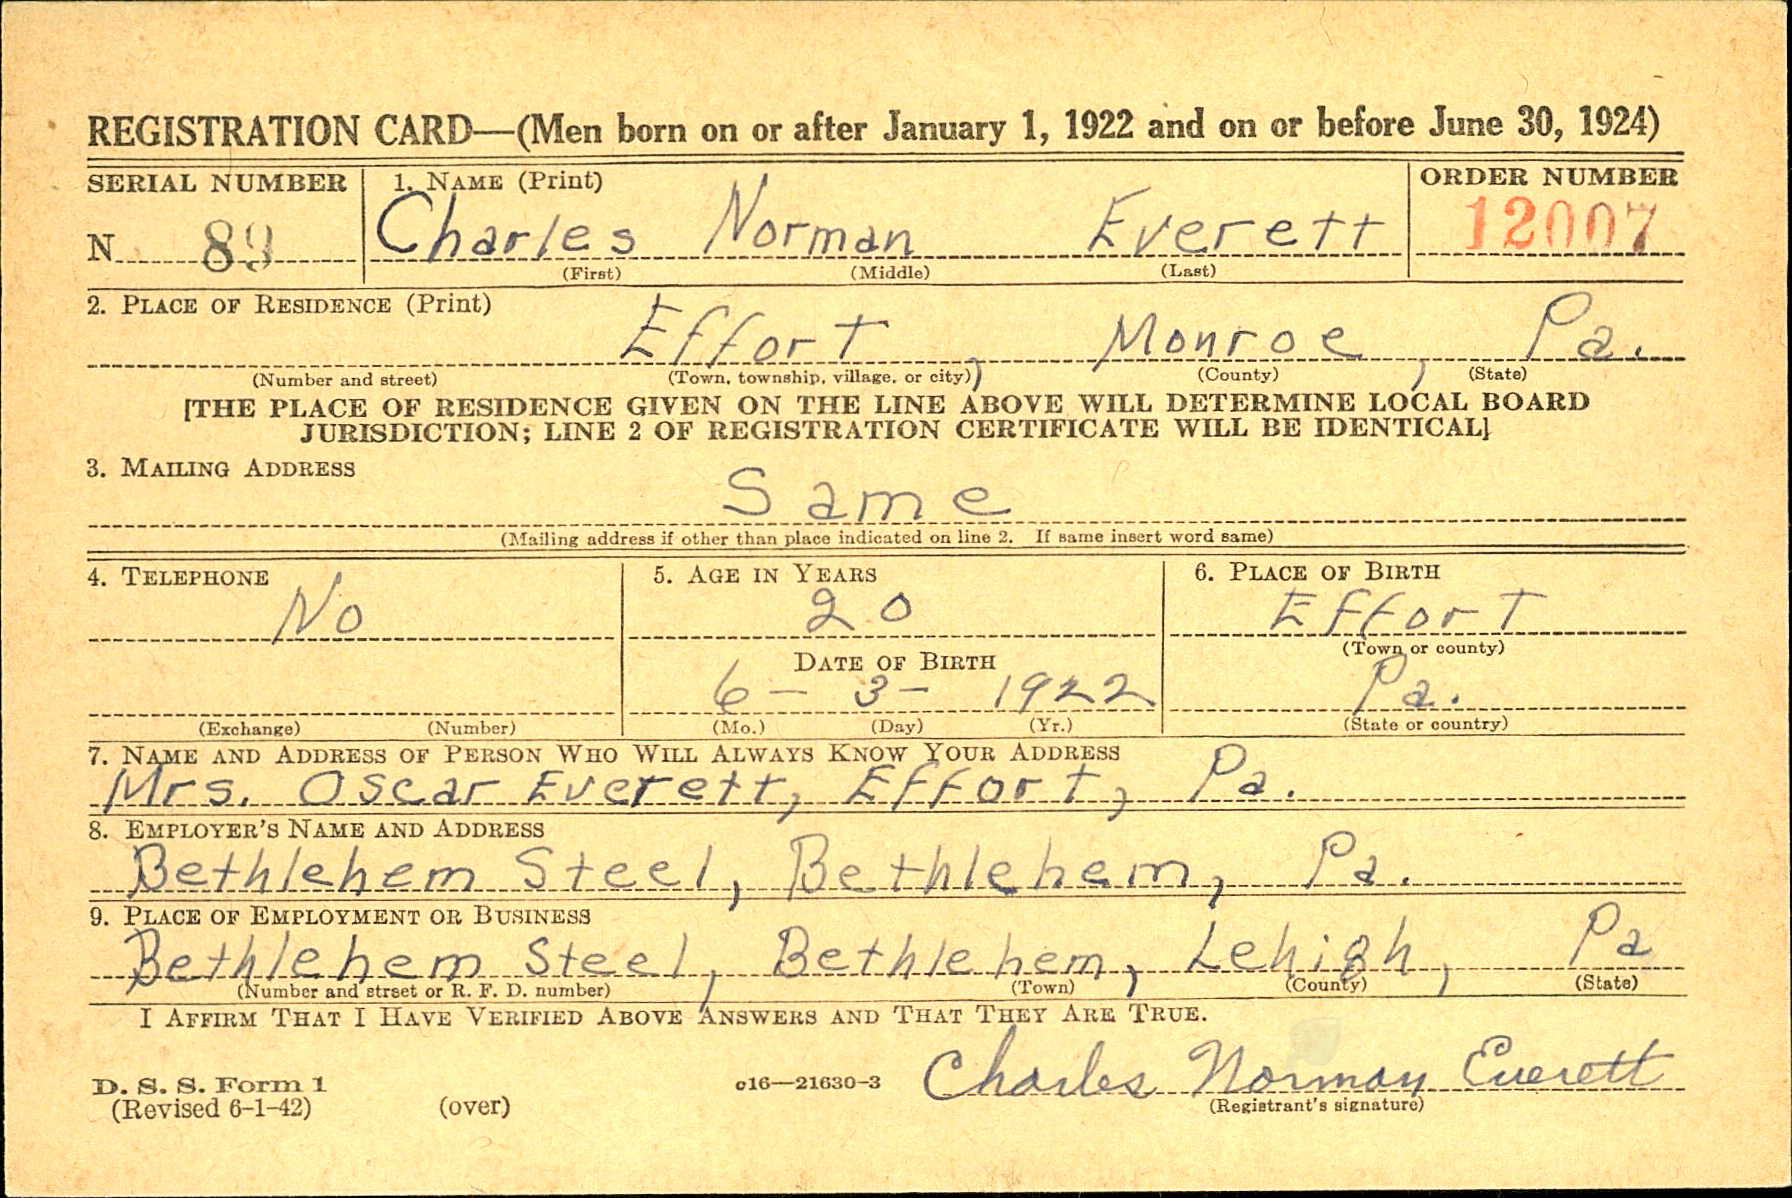 REGISTRATION CARD—(Men born on or after January 1, 1922 and on or before June 30, 1924)
SERIAL NUMBER 1. NAME (Print) ORDER NUMBER
N 89 Charles Norman Everett 12007
(First) (Middle) (Last)
2. PLACE OF RESIDENCE (Print)
Effort, Monroe, Pa.
(Number and street) (Town, township, village, or city) (County) (State)
[THE PLACE OF RESIDENCE GIVEN ON THE LINE ABOVE WILL DETERMINE LOCAL BOARD
JURISDICTION; LINE 2 OF REGISTRATION CERTIFICATE WILL BE IDENTICAL]
3. MAILING ADDRESS
Same
(Mailing address if other than place indicated on line 2. If same insert word same)
4. TELEPHONE 5. AGE IN YEARS 6. PLACE OF BIRTH
No 20 Effort
DATE OF BIRTH (Town or county)
6 - 3 - 1922 Pa.
(Exchange) (Number) (Mo.) (Day) (Yr.) (State or country)
7. NAME AND ADDRESS OF PERSON WHO WILL ALWAYS KNOW YOUR ADDRESS
Mrs. Oscar Everett, Effort, Pa.
8. EMPLOYER'S NAME AND ADDRESS
Bethlehem Steel, Bethlehem, Pa.
9. PLACE OF EMPLOYMENT OR BUSINESS
Bethlehem Steel, Bethlehem, Lehigh, Pa
(Number and street or R. F. D. number) (Town) (County) (State)
I AFFIRM THAT I HAVE VERIFIED ABOVE ANSWERS AND THAT THEY ARE TRUE.
D. S. S. Form 1 c16—21630-3 Charles Norman Everett
(Revised 6-1-42) (over) (Registrant's signature)